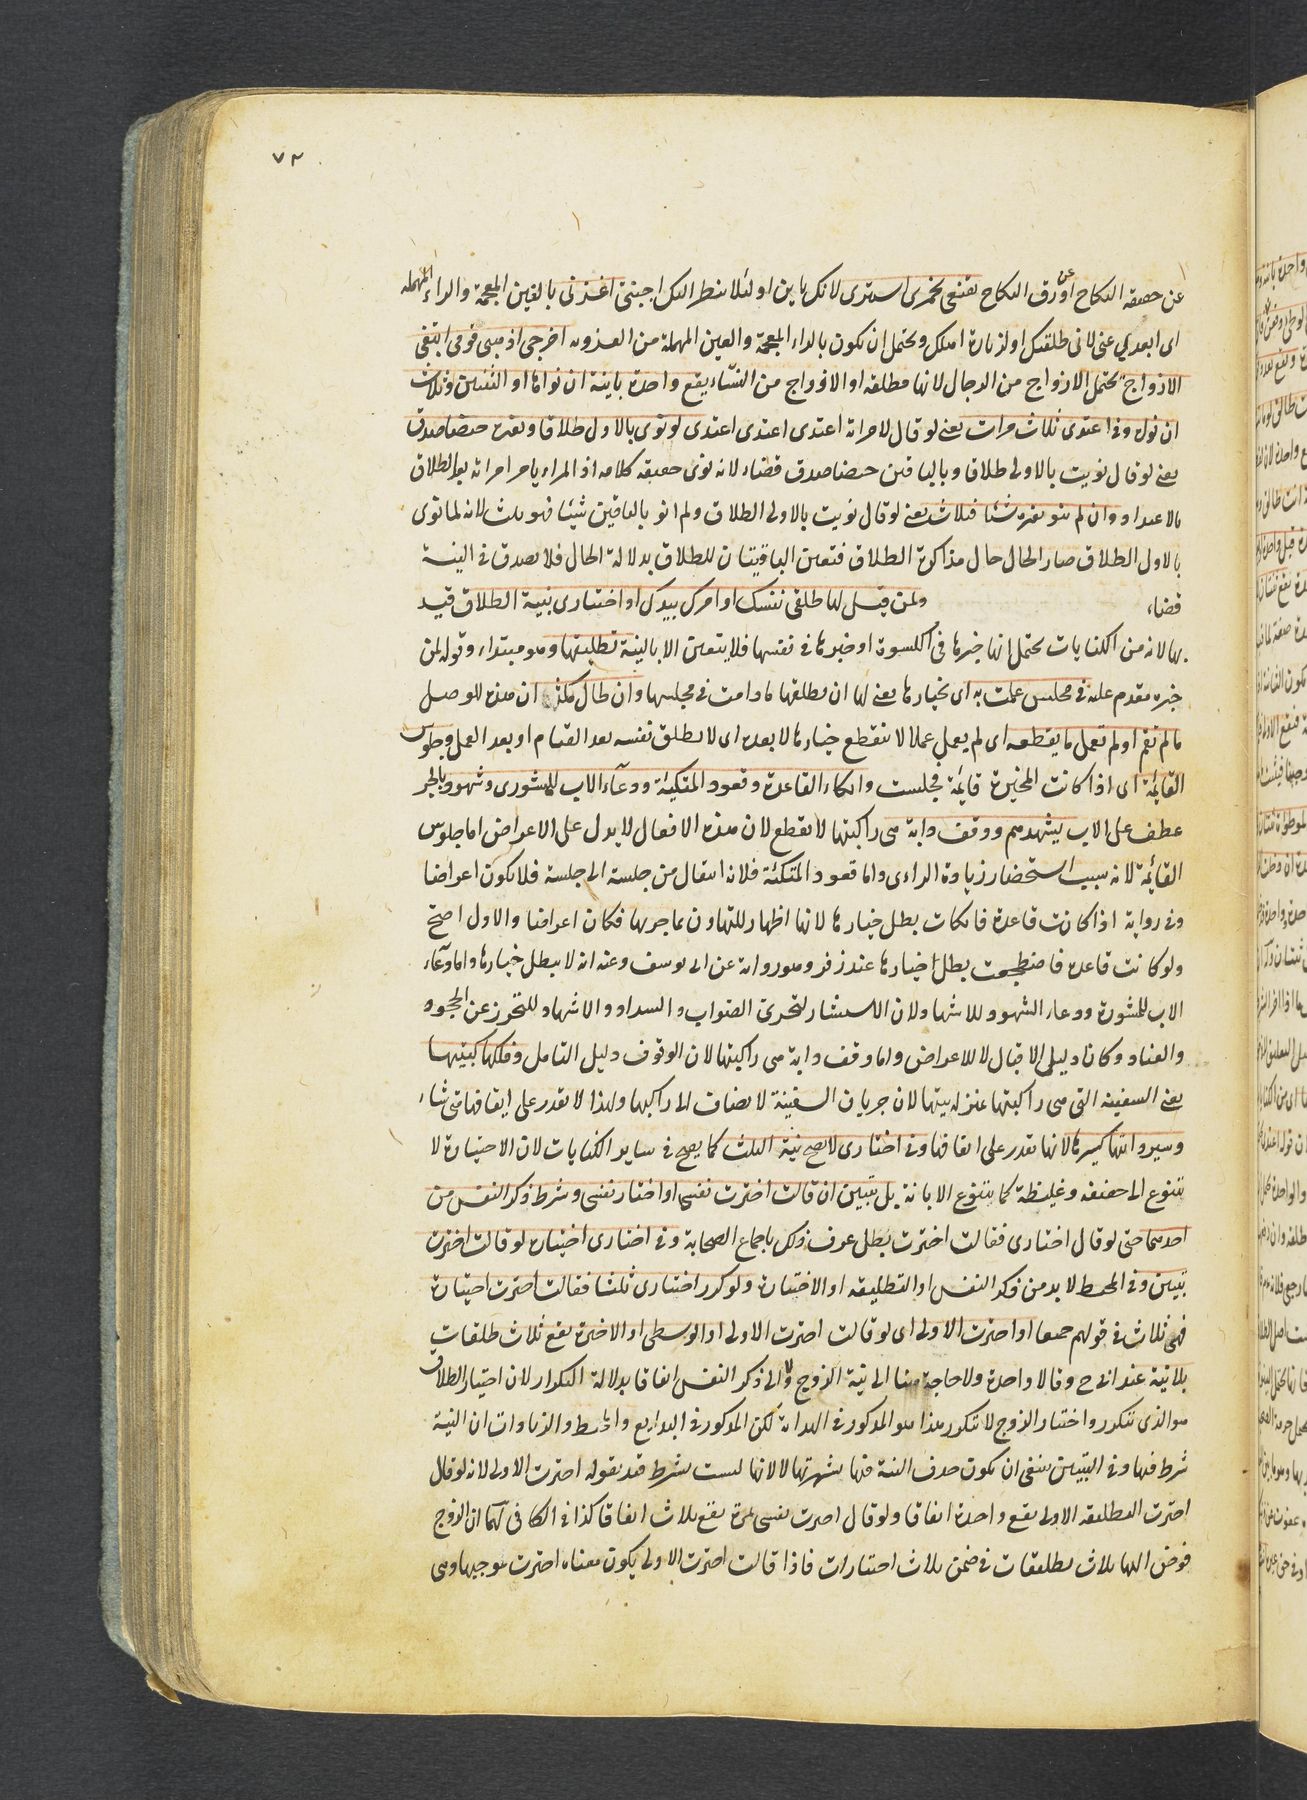 ٧٢
عن حقيقة النكاح او عن رق النكاح تقنعي تخمري استتري لانك باين او لئلا ينظر اليك اجنبي اغربي بالغين المعجمة والراء المهملة
اي ابعدي عني لاني طلقتك او لزيارة اهلك ويحتمل ان يكون بالزاء المعجمة والعين المهملة من العزوبه اخرجي اذهبي قومي ابتغي
الازواج يحتمل الازواج من الرجال لانها مطلقة او الازواج من النساء يقع واحدة باينة ان نواها او الثنتين وثلاث
ان نواه وفي اعتدي ثلاث مرات يعني لو قال لامراته اعتدي اعتدي اعتدي لو نوى بالاول طلاقا وبغيره حيضا صدق
يعني لو قال نويت بالاولى طلاقا وبالباقين حيضا صدق قضاء لانه نوى حقيقة كلامه اذ المراء يامر امراته بعد الطلاق
بالاعتداد وان لم ينو بغيره شيئا فثلاث يعني لو قال نويت بالاولى الطلاق ولم انو بالباقين شيئا فهو ثلث لانه لما نوى
بالاول الطلاق صار الحال حال مذاكرة الطلاق فتعين الباقيتان للطلاق بدلالة الحال فلا يصدق في النية
قضاء ولمن قيل لها طلقي نفسك او امرك بيدك او اختياري بنية الطلاق قيد
بها لانه من الكنايات يحتمل انها خيرها في الكسوة او خيرها في نفسها فلا يتعين الا بالنية تطليقها وهو مبتداء وقوله لمن
خبره مقدم عليه في مجلس علمت به اي بخيارها يعني لها ان تطلقها ما دامت في مجلسها وان طال ان هذه للوصل
ما لم تقم او لم تعمل ما يقطعه اي لم يعمل عملا لا ينقطع خيارها لا بعده اي لا تطلق نفسه بعد القيام او بعد العمل وجلوس
القايمة اي اذا كانت المخيرة قايمة فجلست واتكاء القاعدة وقعود المتكية ودعاء الاب للشورى وشهود بالجر
عطف على الاب يشهدهم ووقف دابة هي راكبتها لا تقطع لان هذه الافعال لا يدل على الاعراض اما جلوس
القائمة لانه سبب استحضار زيادة الراءي واما قعود المتكئة فلانه انتقال من جلسة الى جلسة فلا يكون اعراضا
وفي رواية اذا كانت قاعدة فاتكات بطل خيارها لانها اظهار للتهاون بما حربها فكان اعراضا والاول اصح
ولو كانت قاعدة فاضطجعت بطل خيارها عند زفر وهو رواية عن ابي يوسف وعنه انه لا يبطل خيارها واما دعاء
الاب للمشورة ودعاء الشهود للاشهاد لان الاستشار لتحرى الصواب والسداد والاشهاد للتحرز عن الجحود
والعناد وكانا دليلي الاقبال لا للاعراض واما وقف دابة هي راكبتها لان الوقوف دليل التامل وفلكها كبيتها
يعني السفينة التي هي راكبتها بمنزلة بيتها لان جريان السفينة لا يضاف الى راكبها ولهذا لا تقدر على ايقافها متى شاء
وسير دابتها كسيرها لانها تقدر على ايقافها وفي اختاري لا يصح نية الثلث كما يصح في ساير الكنايات لان الاختيارة لا
يتنوع الى حفيفة وغليظة كما يتنوع الابانة بل تبين ان قالت اخترت نفسي او اختار نفسي وشرط ذكر النفس من
احدهما حتى لو قال اختاري فقالت اخترت بطل عرف ذلك باجماع الصحابة وفي اختاري اختيارة لو قالت اخترت
تبين وفي المحيط لابد من ذكر النفس او التطليقة او الاختيارة ولو كرر اختاري ثلثا فقالت اخترت اختيارة
فهي ثلاث في قولهم جميعا او اخترت الاولى اي لو قالت اخترت الاولى او الوسطى او الاخيرة يقع ثلاث طلقات
بلا نية عند ابي ح وقالا واحدة ولا حاجة هنا الى نية الزوج ولا الى ذكر النفس اتفاقا بدلالة التكرار لان اختيار الطلاق
هو الذي يتكرر واختيار الزوج لا يتكرر هذا هو المذكور في الهداية لكن المذكور في البدايع والمحيط والزيادات ان النية
شرط فيها وفي التبيين ينبغي ان يكون حذف النية فيها لشهرتها لا لانها ليست بشرط قيد بقوله اخترت الاولى لانه لو قال
اخترت التطليقة الاولى يقع واحدة اتفاقا ولو قال اخترت نفسي بمرة يقع ثلاث اتفاقا كذا في الكافي لهما ان الزوج
فوض اليها ثلاث تطليقات في ضمن ثلاث اختيارات فاذا قالت اخترت الاولى يكون معناه اخترت موجبها وهي